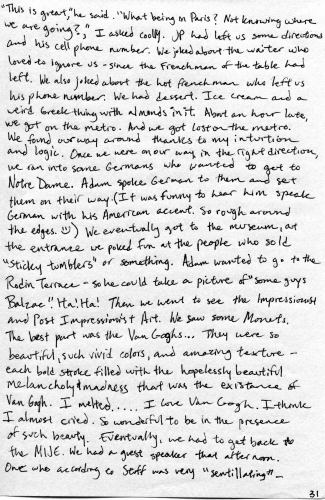 "This is great," he said. "What being in Paris? Not knowing where
we are going?," I asked coolly. JP had left us some directions
and his cell phone number. We joked about the waiter who
loved to ignore us - since the Frenchman of the table had
left. We also joked about the hot frenchman who left us
his phone number. We had dessert. Ice cream and a
weird Greek thing with almonds in it. About an hour late,
we got on the metro. And we got lost on the metro.
We found our way around thanks to my intuition
and logic. Once we were on our way in the right direction,
we ran into some Germans who wanted to get to
Notre Dame. Adam spoke German to them and set
them on their way. (It was funny to hear him speak
German with his American accent. So rough around
the edges. ☺) We eventually got to the museum, at
the entrance we poked fun at the people who sold
"sticky tumblers" or something. Adam wanted to go to the
Rodin Terrace - so he could take a picture of "some guys
Balzac"! Ha! Ha! Then we went to see the Impressionist
and Post Impressionist Art. We saw some Monets.
The best part was the Van Goghs... They were so
beautiful, such vivid colors, and amazing texture -
each bold stroke filled with the hopelessly beautiful
melancholy & madness that was the existance of
Van Gogh. I melted..... I love Van Gogh. I think
I almost cried. So wonderful to be in the presence
of such beauty. Eventually, we had to get back to
the MIJE. We had a guest speaker that afternoon.
One who according to Steff was very "sentillating" -
31